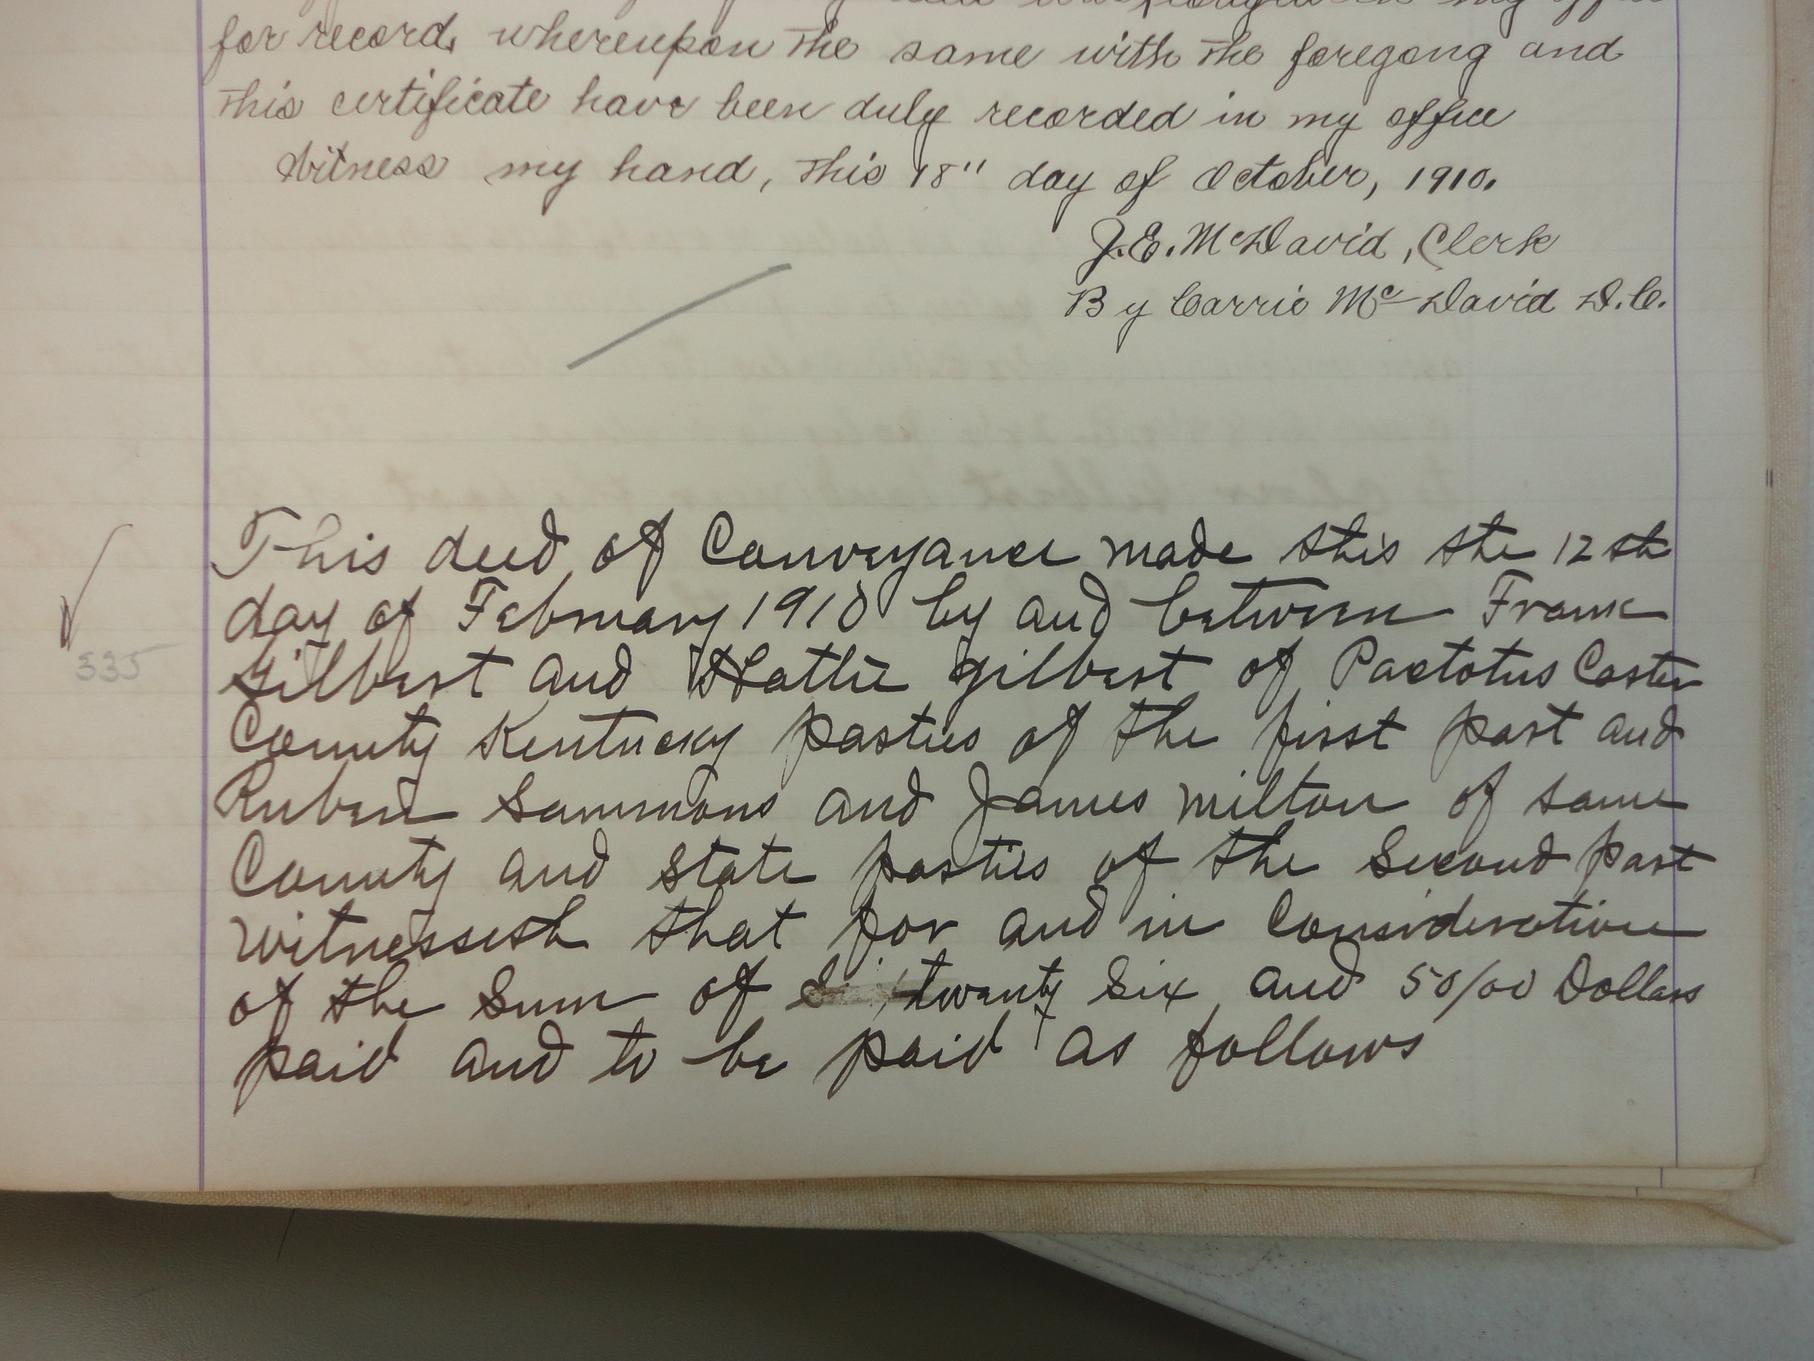 for record, whereupon the same with the foregong and
this certificate have been duly recorded in my office
Witness my hand, this 18" day of October, 1910.
J. E. McDavid, Clerk
By Carrie McDavid D.C.
This deed of Conveyance made this the 12th
day of February 1910 by and between Frank
335
Gilbert and Hattie Gilbert of Pactolus Carter
County Kentucky parties of the first part and
Ruben Sammons and James Milton of same
County and State parties of the Second part
Witnesseth that for and in Consideration
of the Sum of twenty Six and 50/00 Dollars
paid and to be paid as follows